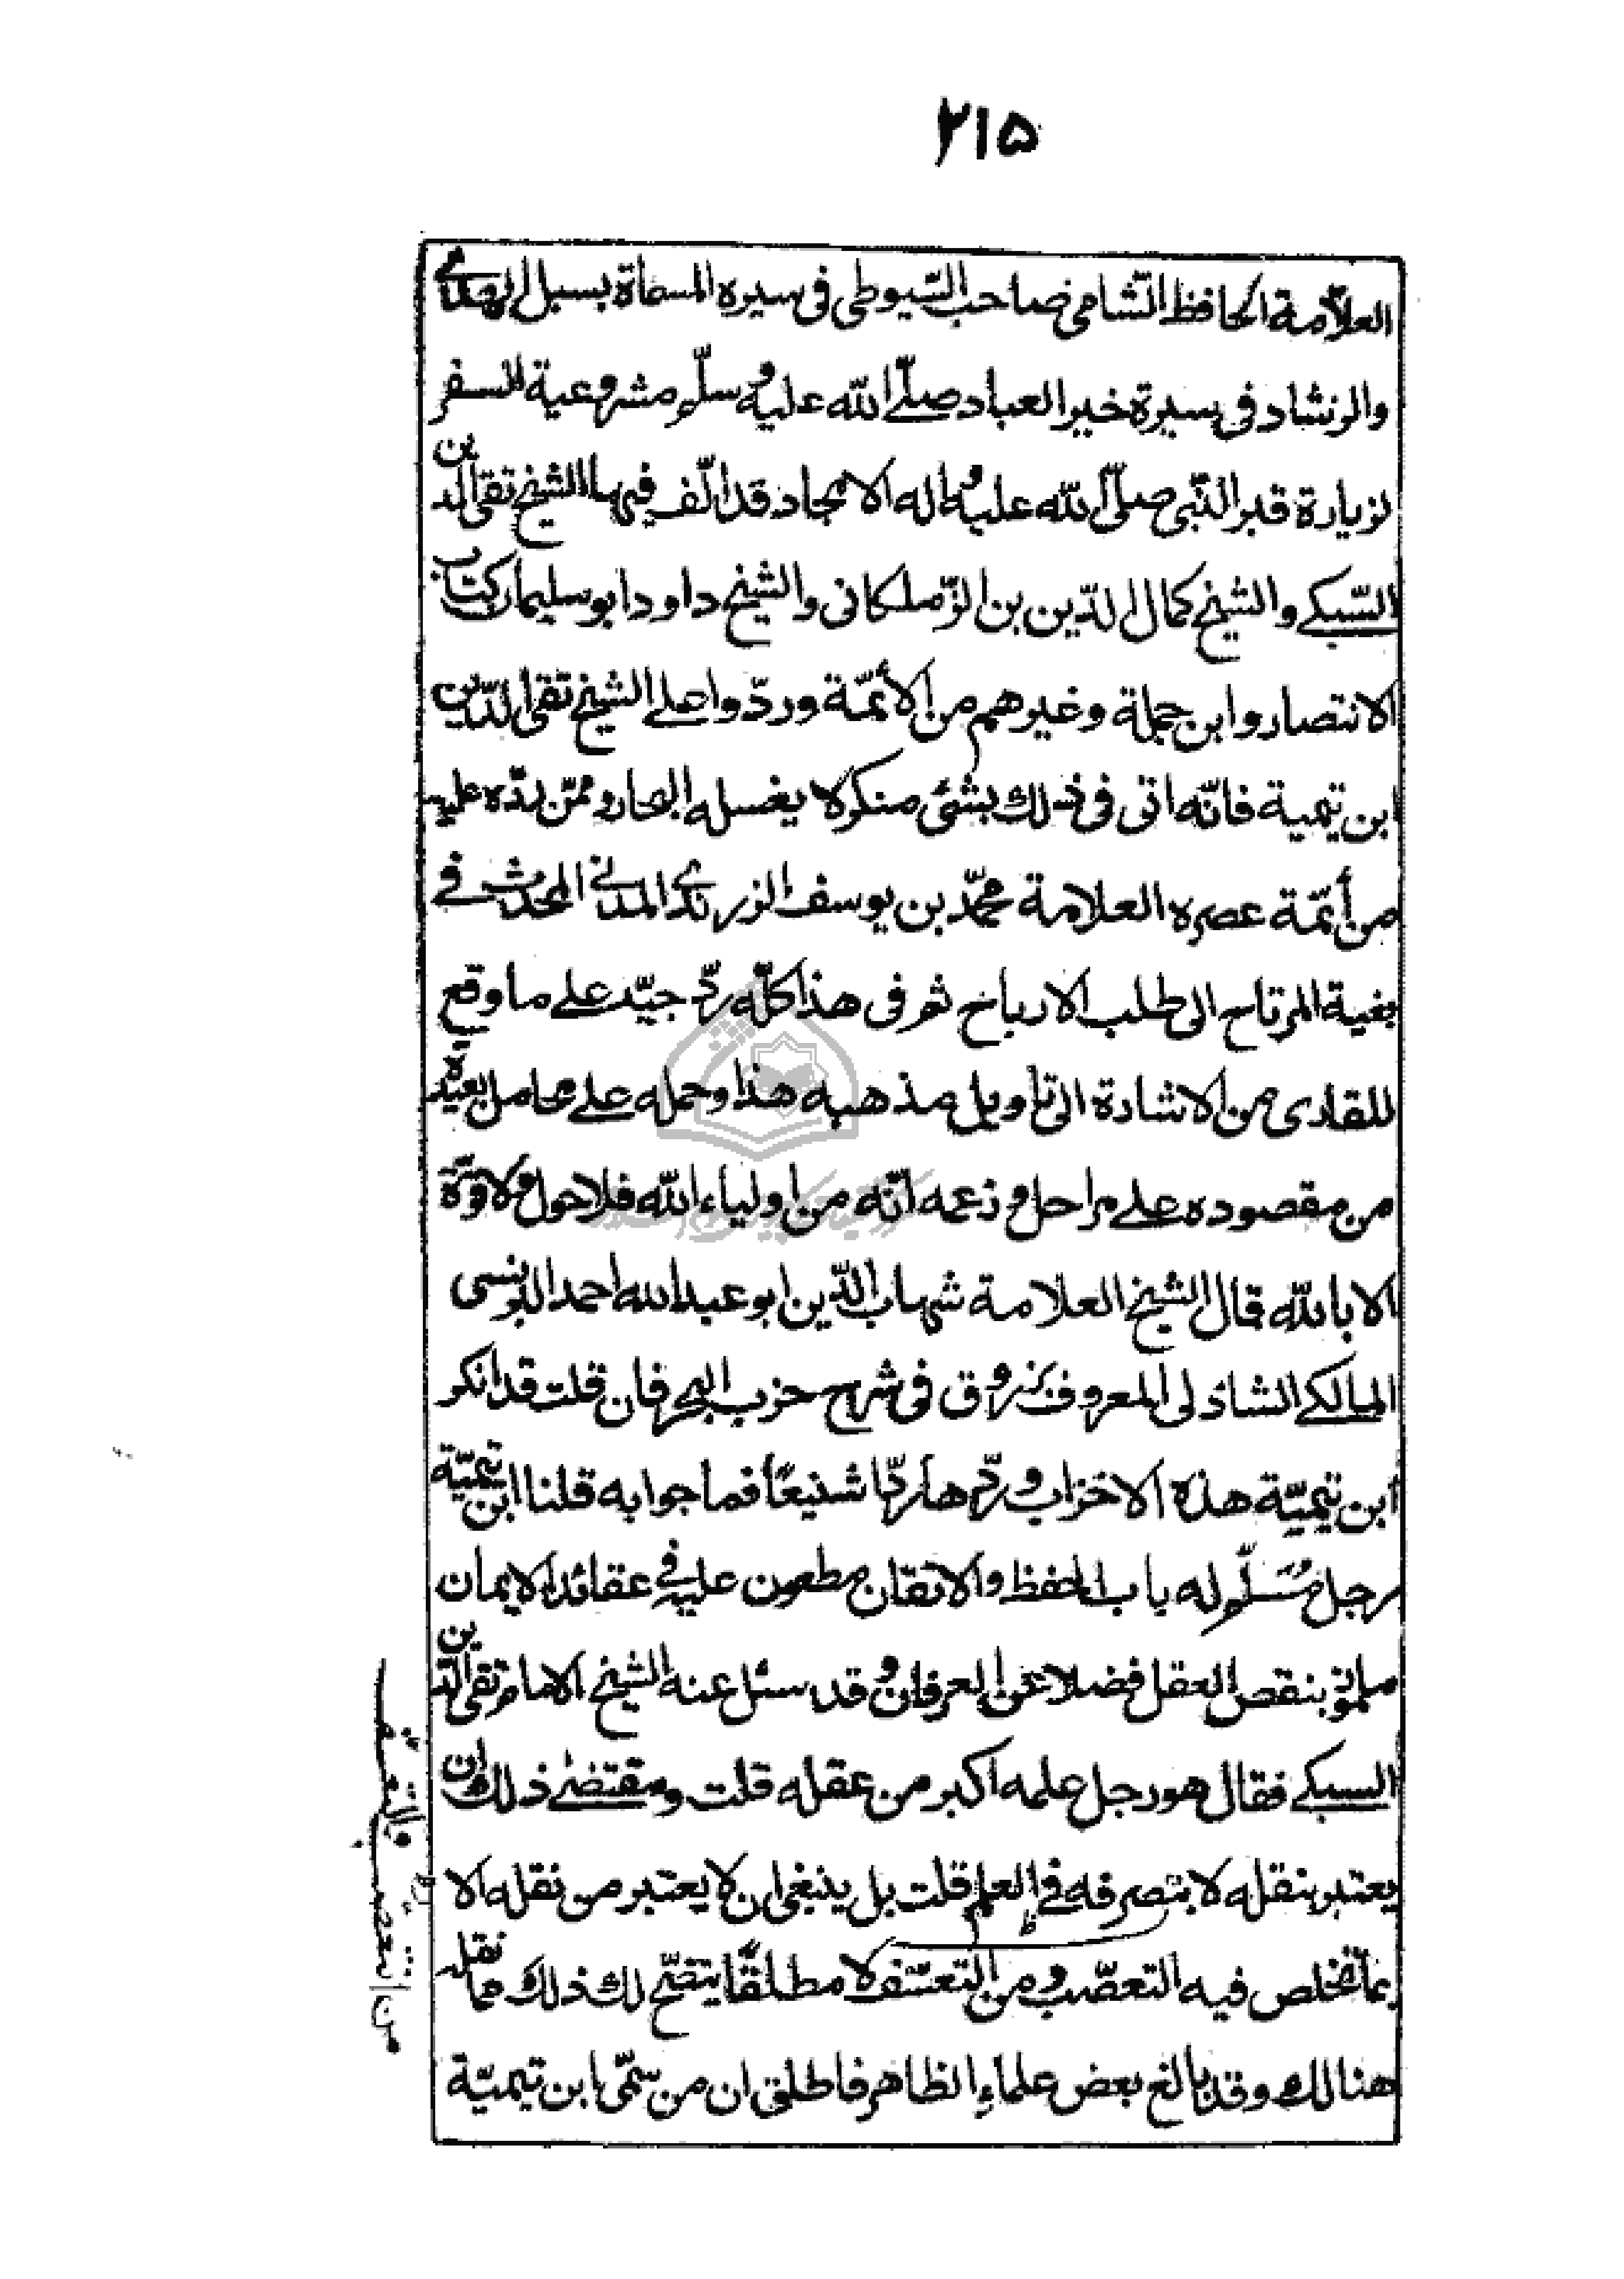 ۲۱۵
العلاّمة الحافظ الشّامی صاحب السّیوطی فی سیره المسماة بسبل الهدی
والرشاد فی سیرة خیر العباد صلّی الله علیه وسلّم مشروعیة السفر
لزیارة قبر النّبی صلّی الله علیه واله الامجاد قد الّف فیها الشیخ تقی الدین
السّبکی والشیخ کمال الدّین بن الزّملکانی والشیخ داود ابو سلیمان کتاب
الانتصار وابن جملة وغیرهم من الأئمّة وردّوا علی الشیخ تقی الدّین
ابن تیمیة فانّه اتی فی ذلك بشیئ منکر لا یغسله البحار وممّن ردّه علیه
من أئمّة عصره العلامة محمّد بن یوسف الزرندی المدنی المحدث فی
بغیة المرتاح الی طلب الارباح ثم فی هذا کلّه ردّ جیّد علی ما وقع
للقاری من الاشارة الی تاویل مذهبه هذا وحمله علی محامل بعیدة
من مقصوده علی مراحل وزعمه انّه من اولیاء الله فلا حول ولا قوّة
الا بالله قال الشیخ العلامة شهاب الدّین ابو عبد الله احمد البرنسی
المالکی الشاذلی المعروف بزروق فی شرح حزب البحر فان قلت قد انکر
ابن تیمیّة هذه الاخزاب وردّها ردّا شنیعًا فما جوابه قلنا ابن تیمیّة
رجل مُسَلّم له باب الحفظ والاتقان مطعون علیه فی عقائد الایمان
ملموز بنقص العقل فضلا عن العرفان وقد سئل عنه الشیخ الامام تقی الدین
السبکی فقال هو رجل علمه اکبر من عقله قلت ومقتضی ذلك ان
یعتبر بنقله لا بتصرفه فی العلم قلت بل ینبغی ان لا یعتبر من نقله الا
بما تخلص فیه التعصّب ومن التعسّف لا مطلقًا یتضح لك ذلك مما نقله
هنالك وقد بالغ بعض علماء الظاهر فاطلق ان من سمّی ابن تیمیّة
من التعصب والتعسف